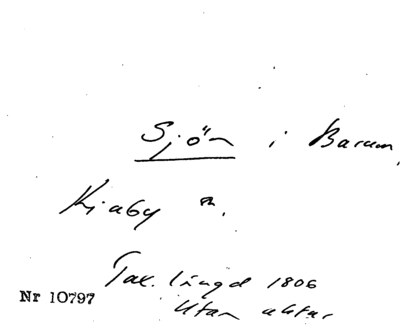 Sjön i Barum,
Kiaby sn.
Tax. längd 1806
Nr 10797
Utan aktar